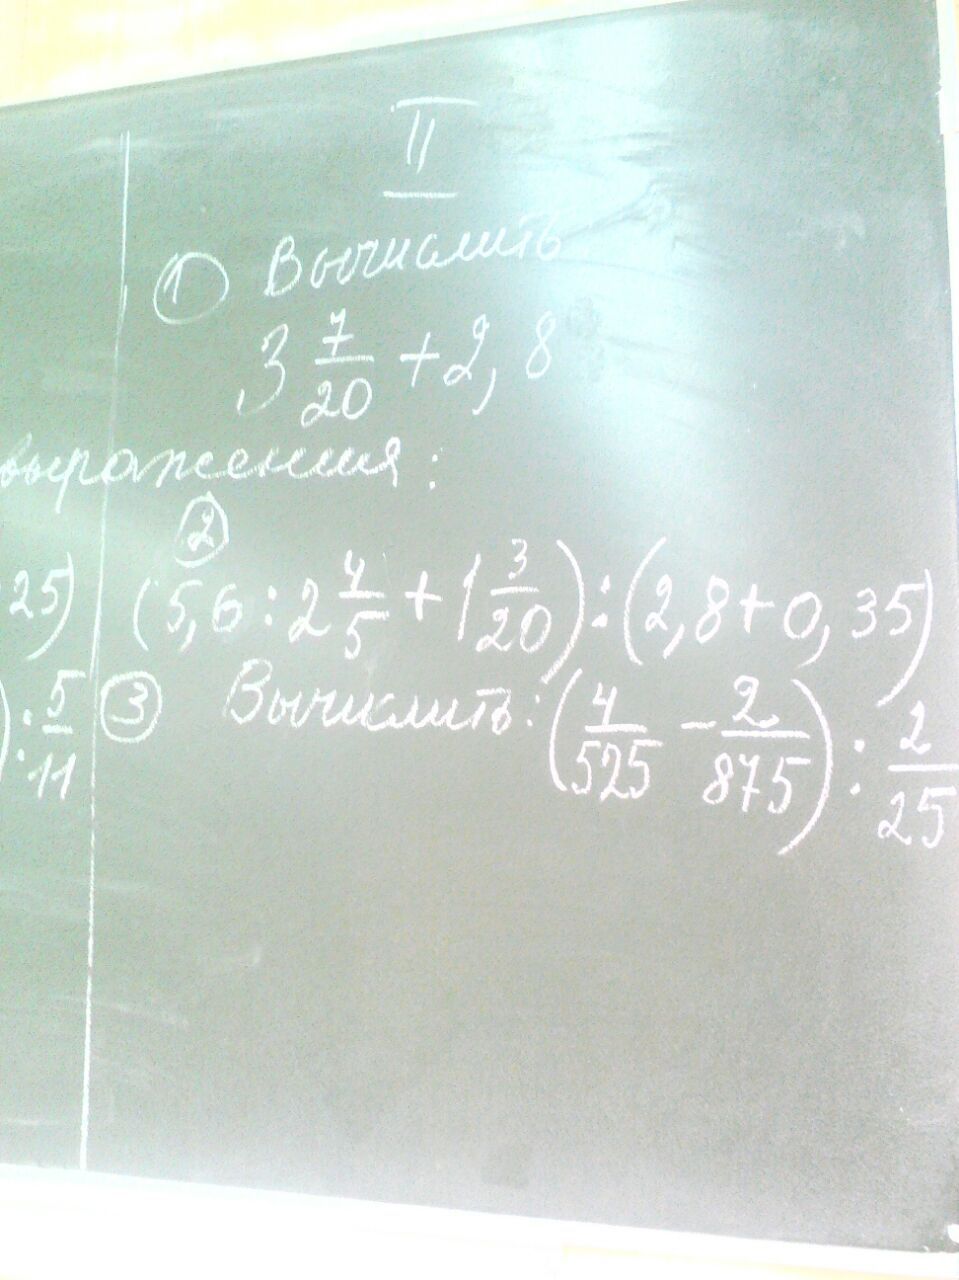 II
① Вычислить
3 7/20 + 2,8
выражения:
②
25) (5,6 : 2 4/5 + 1 3/20) : (2,8 + 0,35)
) : 5/11 ③ Вычислить: (4/525 - 2/875) : 2/25